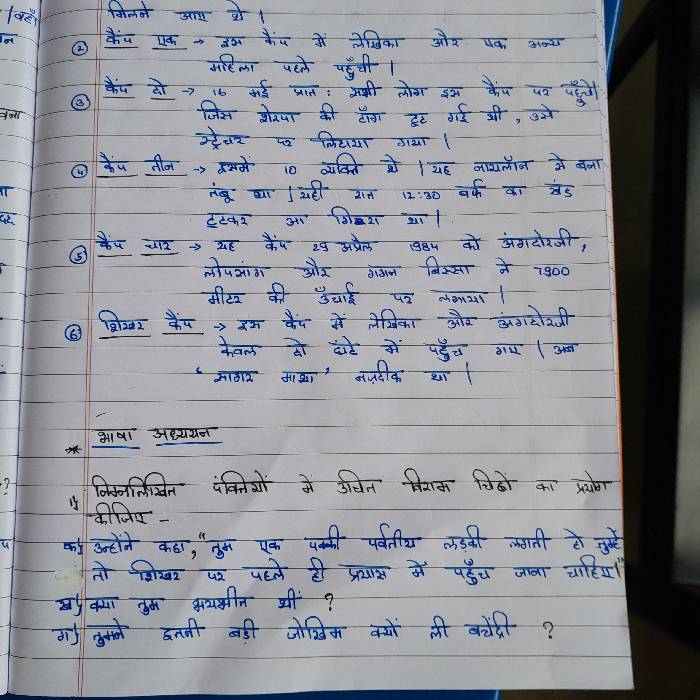 मिलने आए थे |
② कैंप एक → इस कैंप में लेखिका और एक अन्य
महिला पहले पहुँची |
③ कैंप दो → 16 मई प्रात: सभी लोग इस कैंप पर पहुँचे|
जिस शेरपा की टाँग टूट गई थी, उसे
स्ट्रेचर पर लिटाया गया |
④ कैंप तीन → इसमें 10 व्यक्ति थे | यह नायलॉन से बना
तंबू था | यही रात 12:30 बर्फ का खंड
टूटकर आ गिरा था |
⑤ कैंप चार → यह कैंप 29 अप्रैल 1984 को अंगदोरजी,
लोपसांग और गगन बिस्सा ने 7900
मीटर की ऊँचाई पर लगाया |
⑥ शिखर कैंप → इस कैंप में लेखिका और अंगदोरजी
केवल दो घंटे में पहुँच गए | अब
'सागर माथा' नज़दीक था |
* भाषा अध्ययन
1) निम्नलिखित पंक्तियों में उचित विराम चिह्नों का प्रयोग
कीजिए -
क) उन्होंने कहा, "तुम एक पक्की पर्वतीय लड़की लगती हो तुम्हें
तो शिखर पर पहले ही प्रयास में पहुँच जाना चाहिए|"
ख) क्या तुम भयभीत थीं ?
ग) तुमने इतनी बड़ी जोखिम क्यों ली बचेंद्री ?